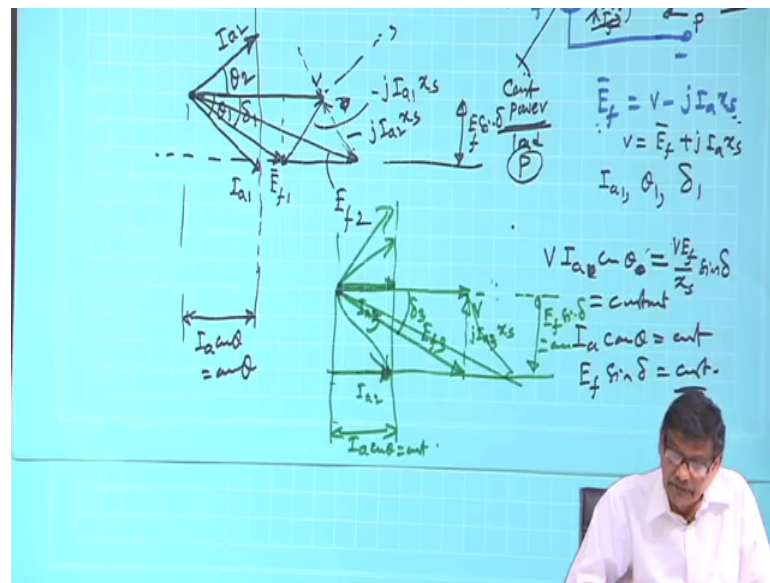 Ia2
θ2
θ1
δ1
V
-jIa1xs
-jIa2xs
Ia1
Ēf1
Ef2
Ef sinδ
Const
Power
load
P
P
-
Ēf = V - jIaxs
V = Ēf + jIaxs
Ia1, θ1, δ1
VIa cosθ = VEf/xs sinδ
= constant
Ia cosθ = const
Ef sinδ = const.
Ia cosθ
= cosθ
V
Ia3
δ3
Ef3
jIa3xs
Ef sinδ
Ia2
Ia cosθ = const